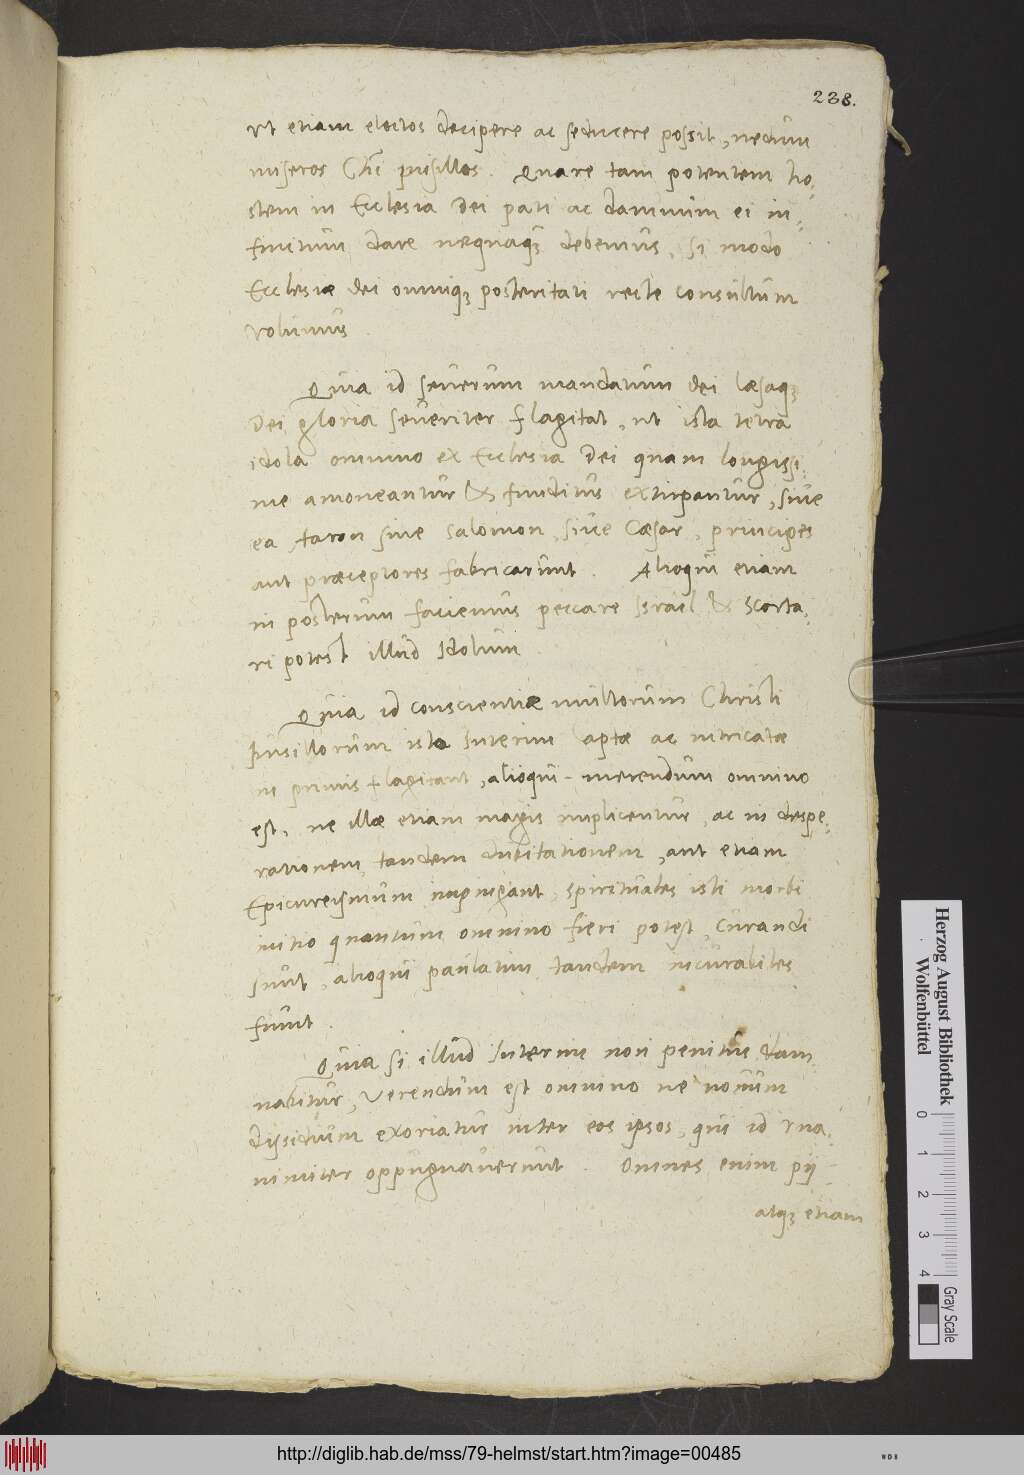 238.
ut etiam electos decipere ac seducere possit, nedum
miseros Chri pusillos. Quare tam potentem ho-
stem in Ecclesia Dei pati ac damnum ei in-
finitum dare nequaq3 debemus, si modo
Ecclesiæ dei omniq3 posteritati recte consultum
volumus.
Quia id severum mandatum dei læsaq3
Dei gloria severiter flagitat, ut ista tetra
idola omnino ex Ecclesia Dei quam longissi-
me amoveantur & funditus extirpantur, sive
ea Aaron sive Salomon, sive Cæsar, principes
aut præceptores fabricarunt. Alioqui etiam
in posterum faciemus peccare Israel & scorta-
ri potest illud Idolum.
Quia id conscientiæ multorum Christi
pusillorum isto Interim captæ ac intricatæ
in primis flagitant, alioqui merendum omnino
est, ne illæ etiam magis implicentur, ac in despe-
rationem, tandem dubitationem, aut etiam
Epicureismum impingant, spirituales isti morbi
initio quantum omnino fieri potest, curandi
sunt, alioqui paulatim tandem incurabiles
fiunt.
Quia si illud Interim non penitus dam-
nabitur, verendum est omnino ne novum
dissidium exoriatur inter eos ipsos, qui id una-
nimiter oppugnaverunt. Omnes enim pij
atq3 etiam
Herzog August Bibliothek
Wolfenbüttel
0 1 2 3 4
Gray Scale
http://diglib.hab.de/mss/79-helmst/start.htm?image=00485